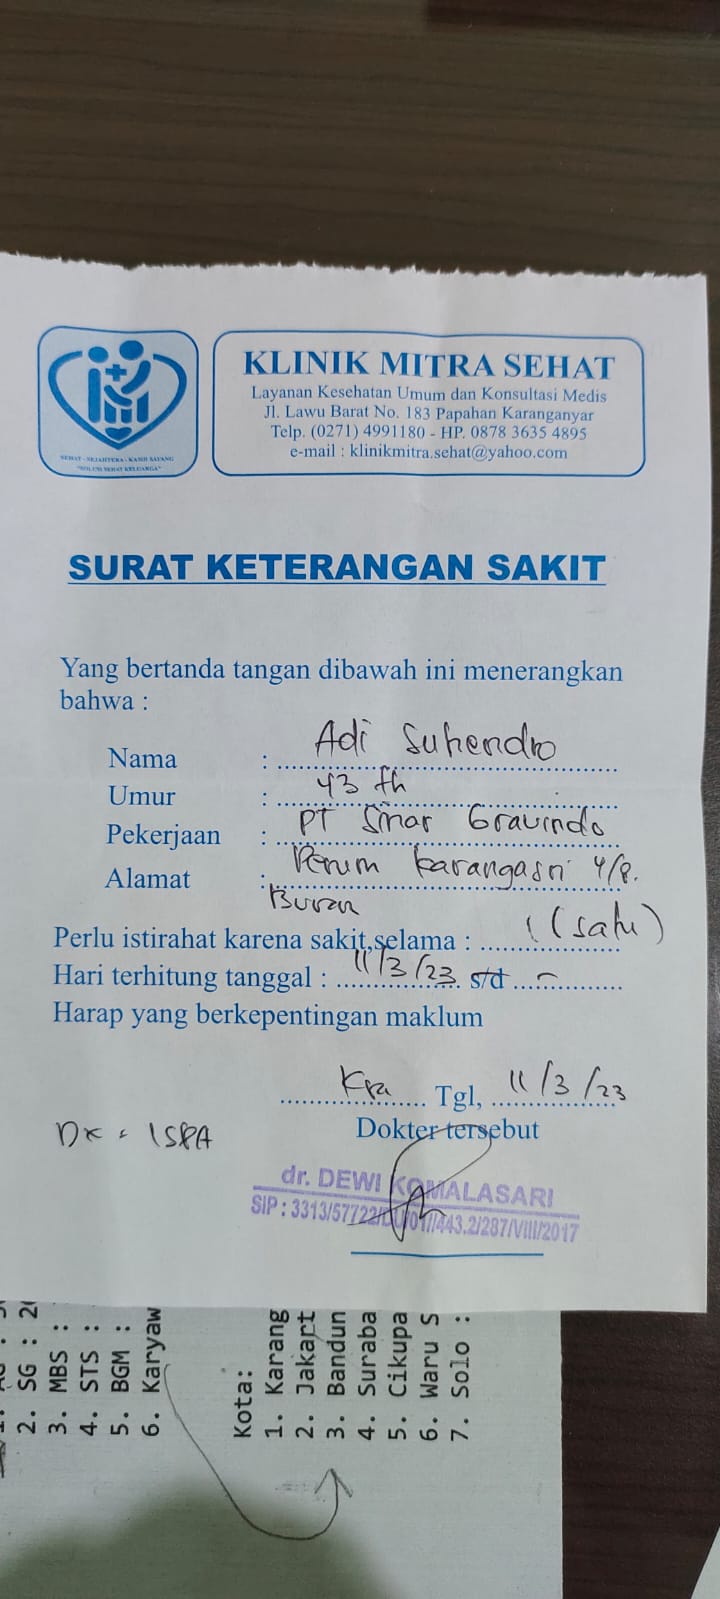 KLINIK MITRA SEHAT
Layanan Kesehatan Umum dan Konsultasi Medis
Jl. Lawu Barat No. 183 Papahan Karanganyar
Telp. (0271) 4991180 - HP. 0878 3635 4895
e-mail : klinikmitra.sehat@yahoo.com
SEHAT - SEJAHTERA - KASIH SAYANG
"SOLUSI SEHAT KELUARGA"
SURAT KETERANGAN SAKIT
Yang bertanda tangan dibawah ini menerangkan
bahwa :
Nama : Adi Suhendro
Umur : 43 th
Pekerjaan : PT Sinar Gravindo
Alamat : Perum Karangasri 4/8.
Buran
Perlu istirahat karena sakit,selama : 1 (satu)
Hari terhitung tanggal : 11/3/23 s/d -
Harap yang berkepentingan maklum
Kra Tgl, 11/3/23
Dokter tersebut
Dx : ISPA
dr. DEWI KOMALASARI
SIP : 3313/57722/DU/01/443.2/287/VIII/2017
2. SG : 2
3. MBS :
4. STS :
5. BGM :
6. Karyaw
Kota:
1. Karang
2. Jakart
3. Bandun
4. Suraba
5. Cikupa
6. Waru S
7. Solo :